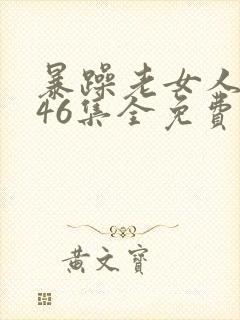 暴躁老女人
46集全免费
黄文宝